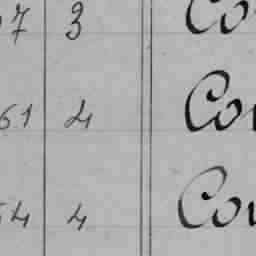 7 3 Co
61 4 Cou
54 4 Cou